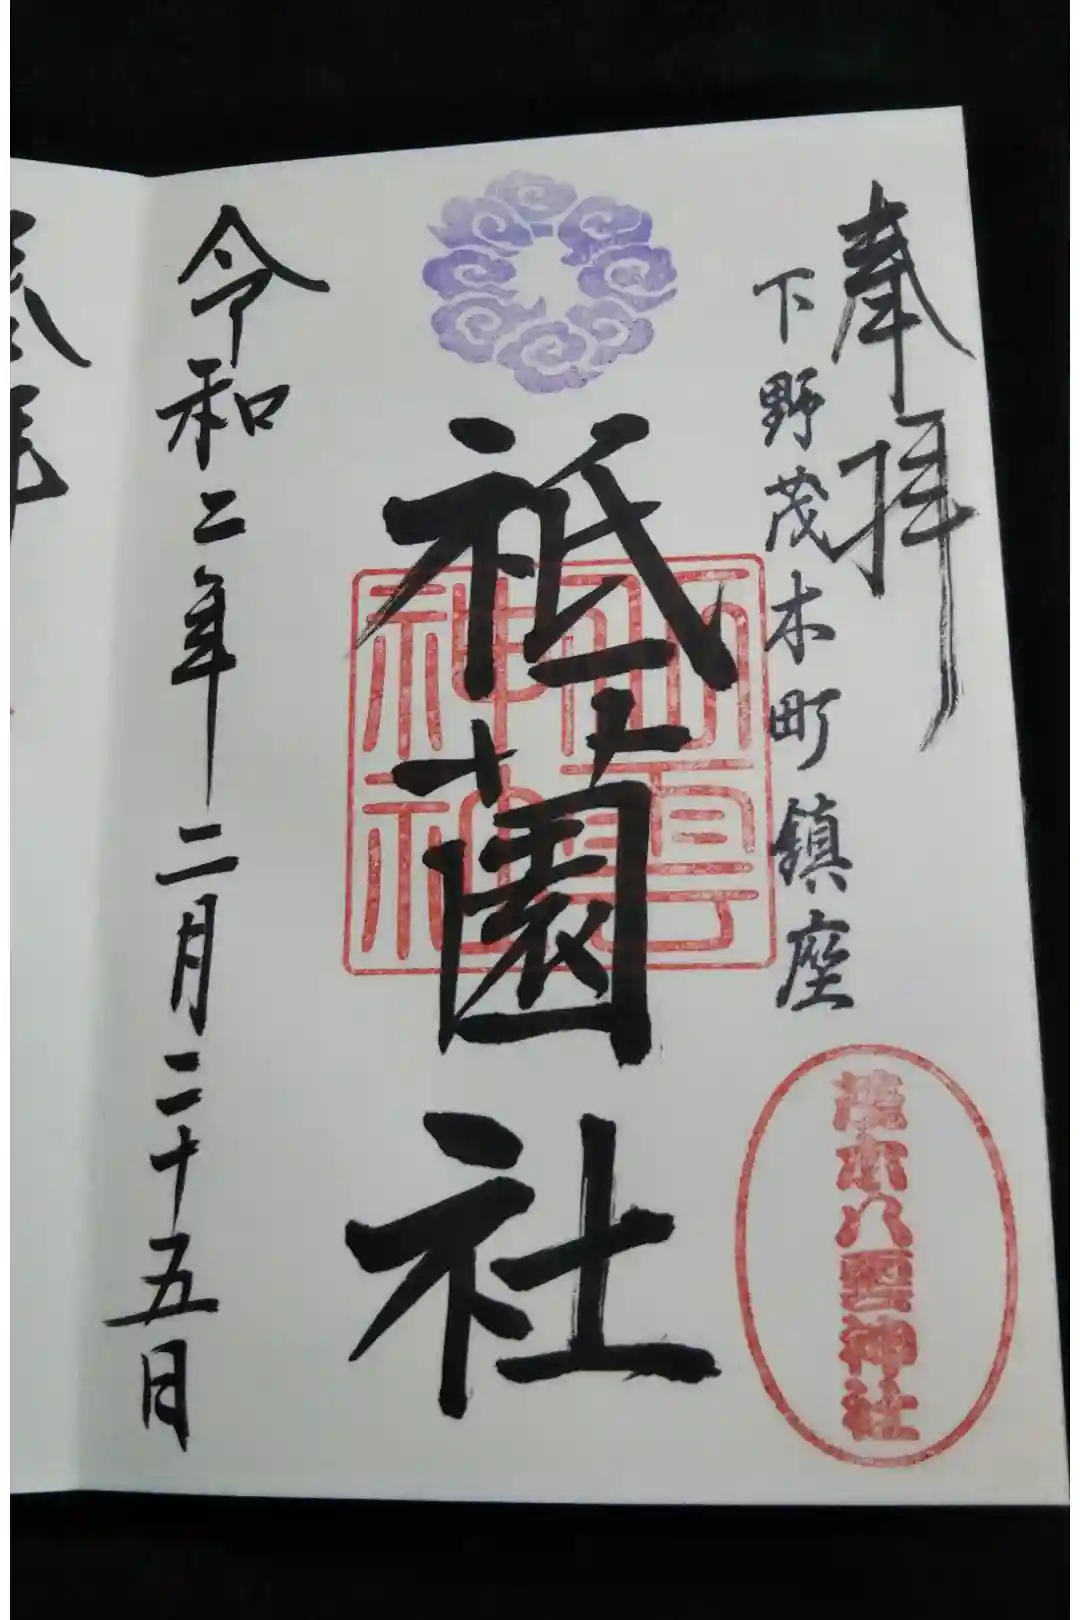 奉拝
下野茂木町鎮座
茂木八雲神社
祇園社
八雲神社
令和二年二月二十五日
奉拝